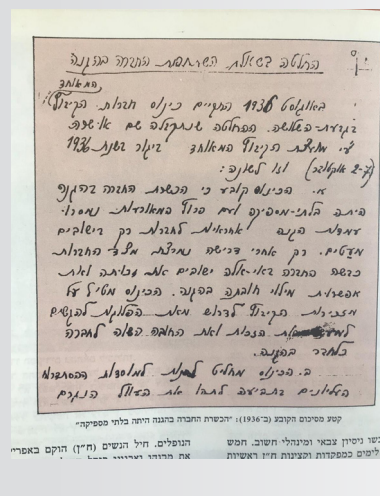 החלטה בשאלת השתתפות החברה בהגנה
המאוחד
באוגוסט 1936 התקיים כינוס חברות הקיבוץ
בגבעת-השלושה. ההחלטה שנתקבלה שם אושרה
ע"י מועצת הקיבוץ המאוחד ביגור בשנת 1936
(2-7 אוקטובר) וזו לשונה:
א. הכינוס קובע כי הכשרת החברה בהגנה
היתה בלתי-מספיקה ועם פרוץ המאורעות נמסרו
עמדות הגנה אחראיות לחברות רק בישובים
מעטים. רק אחרי דרישה נמרצת מצד החברות
כבשה החברה באי-אלה ישובים את זכותה ואת
אפשרות מילוי חובתה בהגנה. הכינוס מטיל על
מזכירות הקיבוץ לדרוש מאת הפלוגות להגשים
את הזכות ואת החובה השוה לחברה
כלחבר בהגנה.
ב. הכינוס מחליט לפנות למוסדות ההסתדרות
העליונים בתביעה לתקן את העוול הנגרם
קטע מסיכום הקובע (ב־1936): "הכשרת החברה בהגנה היתה בלתי מספיקה"
ניסיון צבאי ומינהלי חשוב. חמש
כמפקדות וקצינות ח"ן ראשיות
הנופלים. חיל הנשים (ח"ן) הוקם באפריל